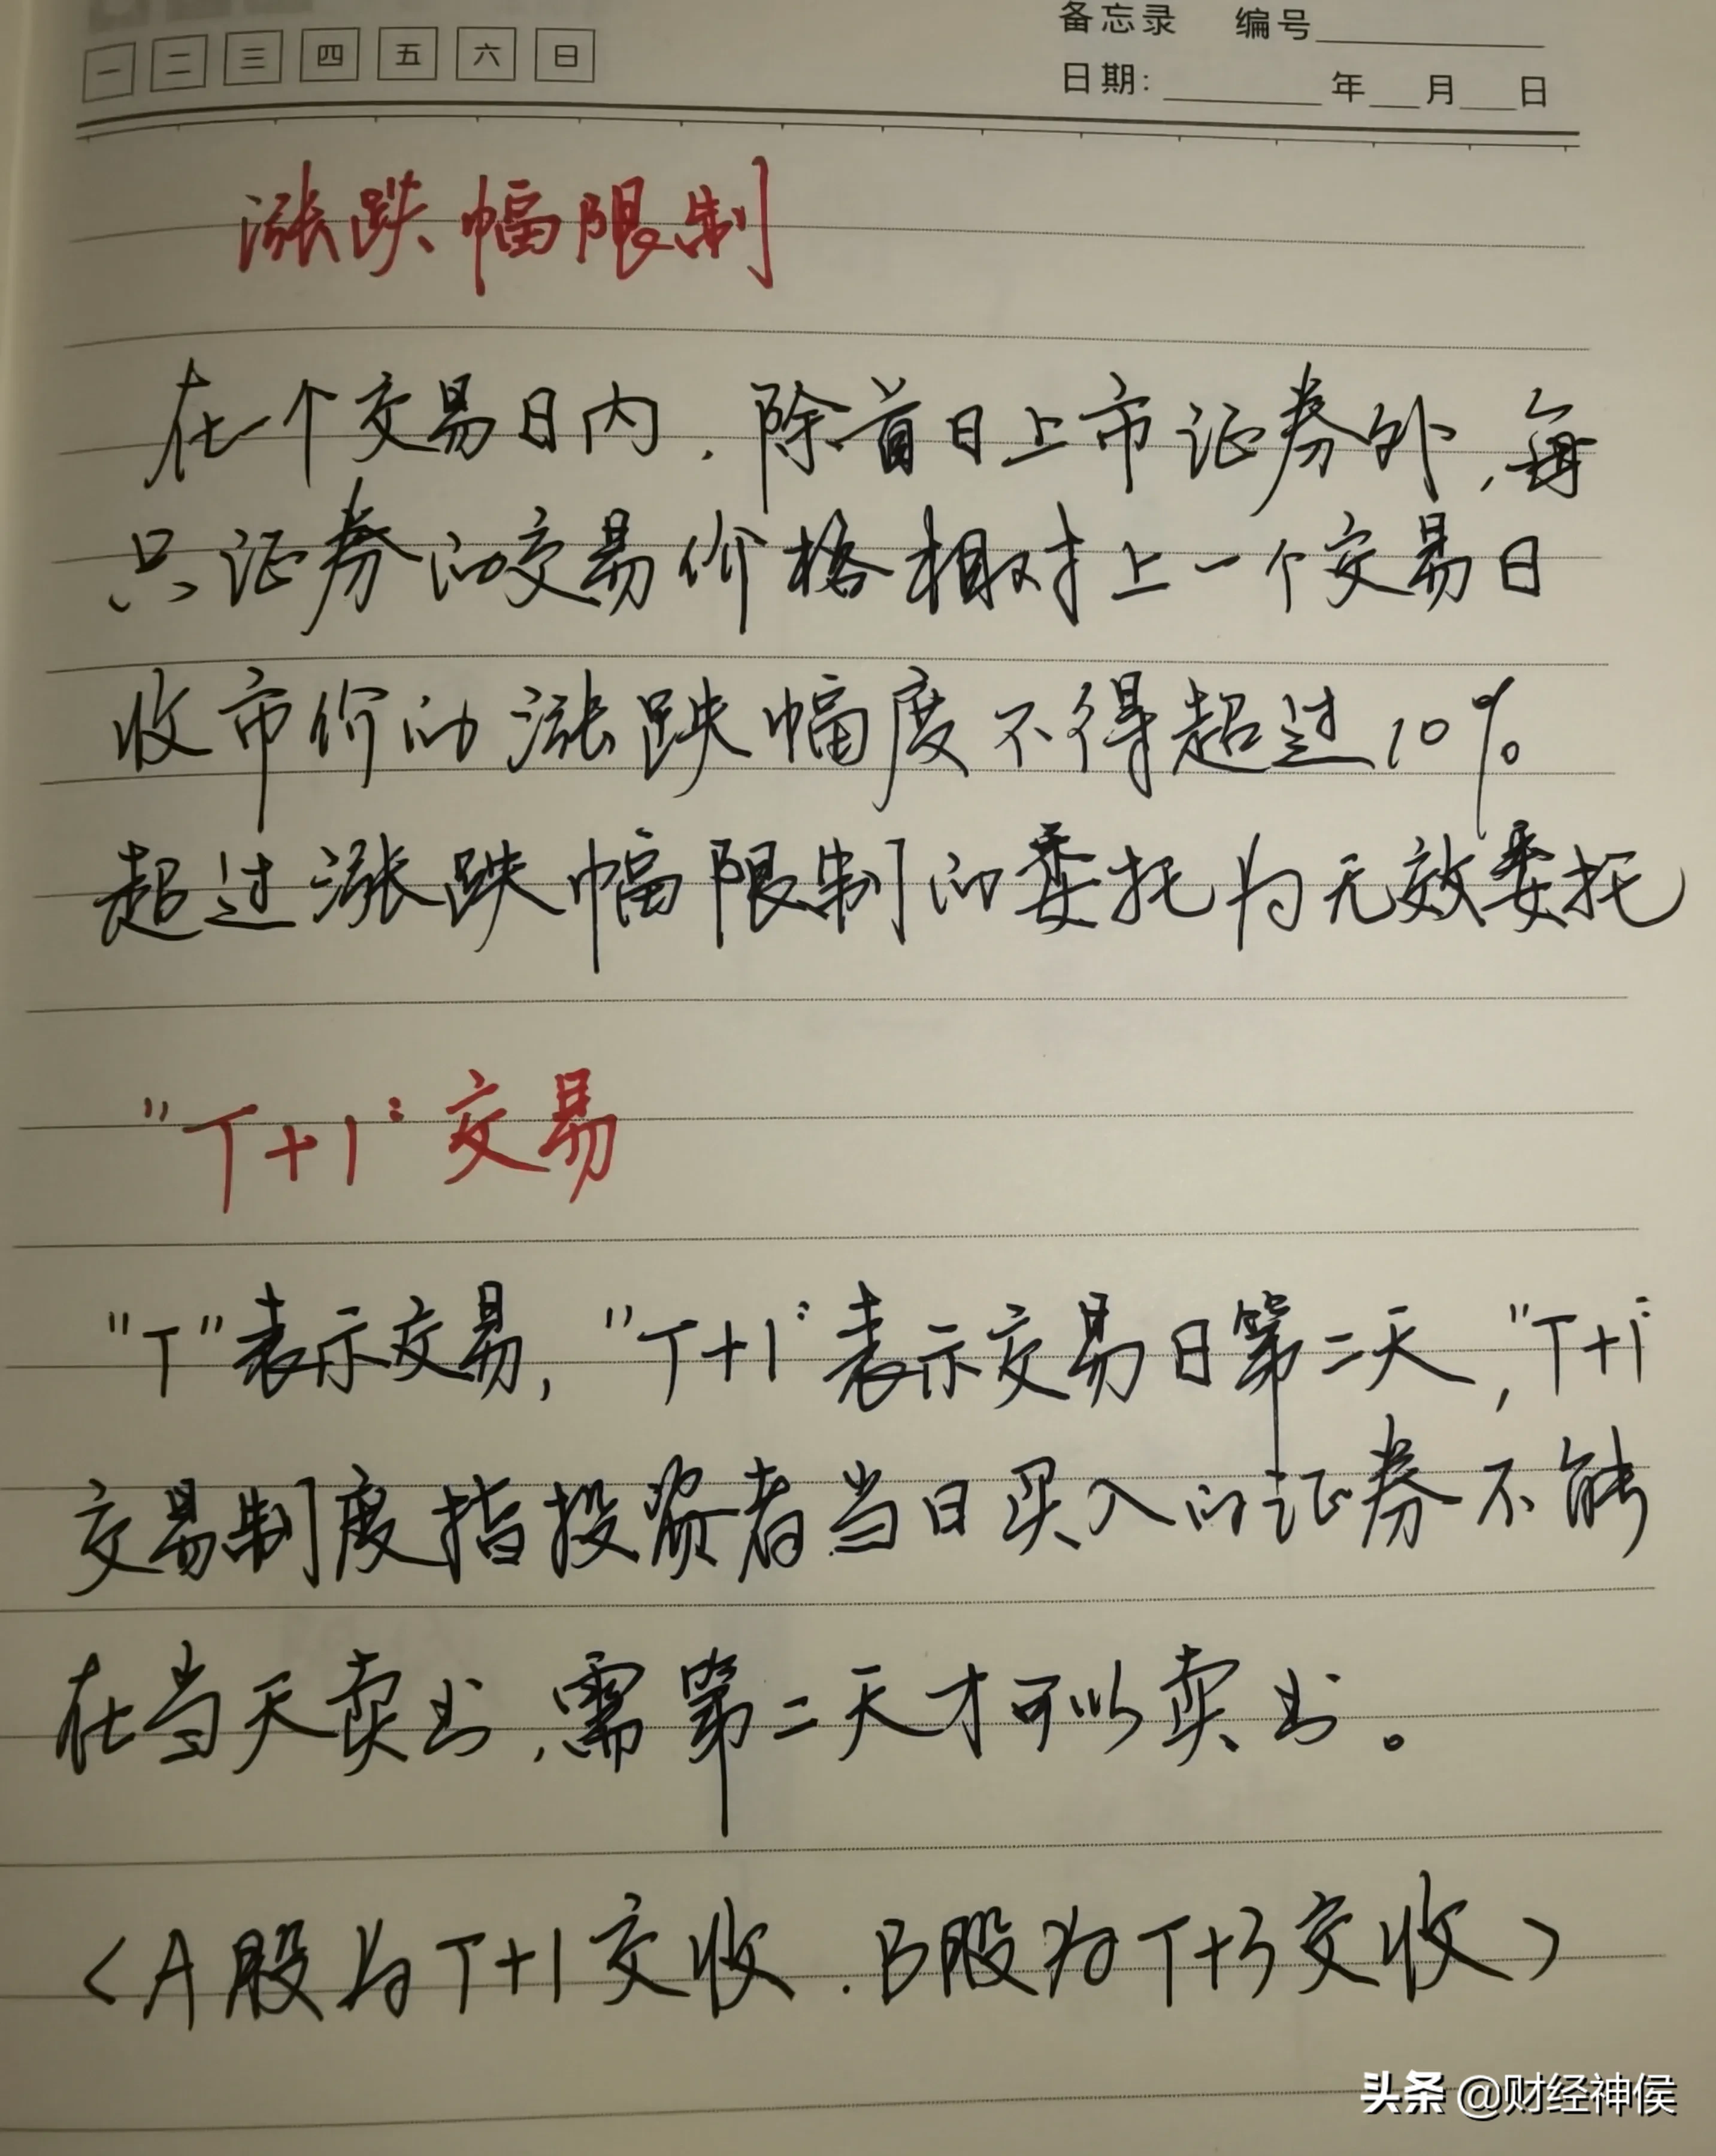 一 二 三 四 五 六 日
备忘录 编号
日期: 年 月 日
涨跌幅限制
在一个交易日内，除首日上市证券外，每
只证券的交易价格相对上一个交易日
收市价的涨跌幅度不得超过10%
超过涨跌幅限制的委托为无效委托
"T+1"交易
"T"表示交易，"T+1"表示交易日第二天，"T+1"
交易制度指投资者当日买入的证券不能
在当天卖出，需第二天才可以卖出。
<A股为T+1交收.B股为T+3交收>
头条 @财经神侯